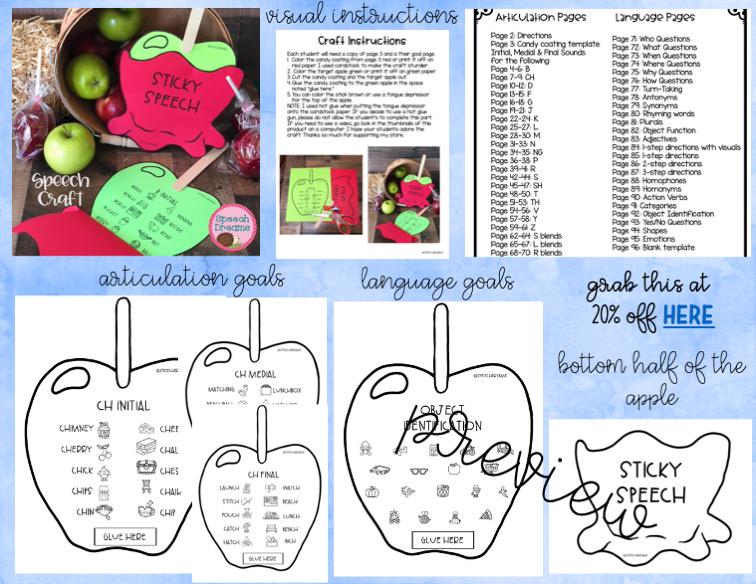 visual instructions
STICKY
SPEECH
Speech
Craft
INITIAL
Speech
Dreams
Craft Instructions
Each student will need a copy of page 3 and a their goal page.
1. Color the candy coating from page 3 red or print it off on
red paper. I used cardstock to make the craft sturdier.
2. Color the target apple green or print it off on green paper.
3. Cut the candy coating and the target apple out.
4. Glue the candy coating to the green apple in the space
noted "glue here."
5. You can color the stick brown or use a tongue depressor
for the top of the apple.
NOTE: I used hot glue when putting the tongue depressor
onto the cardstock paper. If you decide to use a hot glue
gun, please do not allow the students to complete this part.
If you need to see a video, go look in the thumbnails of this
product on a computer. I hope your students adore the
craft. Thanks so much for supporting my store.
Articulation Pages
Page 2: Directions
Page 3: Candy coating template
Initial, Medial & Final Sounds
for the following
Page 4-6: B
Page 7-9: CH
Page 10-12: D
Page 13-15: F
Page 16-18: G
Page 19-21: J
Page 22-24: K
Page 25-27: L
Page 28-30: M
Page 31-33: N
Page 34-35: NG
Page 36-38: P
Page 39-41: R
Page 42-44: S
Page 45-47: SH
Page 48-50: T
Page 51-53: TH
Page 54-56: V
Page 57-58: Y
Page 59-61: Z
Page 62-64: S blends
Page 65-67: L blends
Page 68-70: R blends
Language Pages
Page 71: Who Questions
Page 72: What Questions
Page 73: When Questions
Page 74: Where Questions
Page 75: Why Questions
Page 76: How Questions
Page 77: Turn-Taking
Page 78: Antonyms
Page 79: Synonyms
Page 80: Rhyming words
Page 81: Plurals
Page 82: Object Function
Page 83: Adjectives
Page 84: 1-step directions with visuals
Page 85: 1-step directions
Page 86: 2-step directions
Page 87: 3-step directions
Page 88: Homophones
Page 89: Homonyms
Page 90: Action Verbs
Page 91: Categories
Page 92: Object Identification
Page 93: Yes/No Questions
Page 94: Shapes
Page 95: Emotions
Page 96: Blank template
articulation goals
CH INITIAL
CHIMNEY
CHERRY
CHICK
CHIPS
CHIN
CHEE
CHAL
CHES
CHAIR
CHIP
GLUE HERE
CH MEDIAL
MATCHING LUNCHBOX
CH FINAL
LAUNCH WATCH
STITCH BEACH
POUCH LUNCH
CATCH BENCH
HATCH INCH
GLUE HERE
language goals
OBJECT
IDENTIFICATION
preview
GLUE HERE
grab this at
20% off HERE
bottom half of the
apple
STICKY
SPEECH